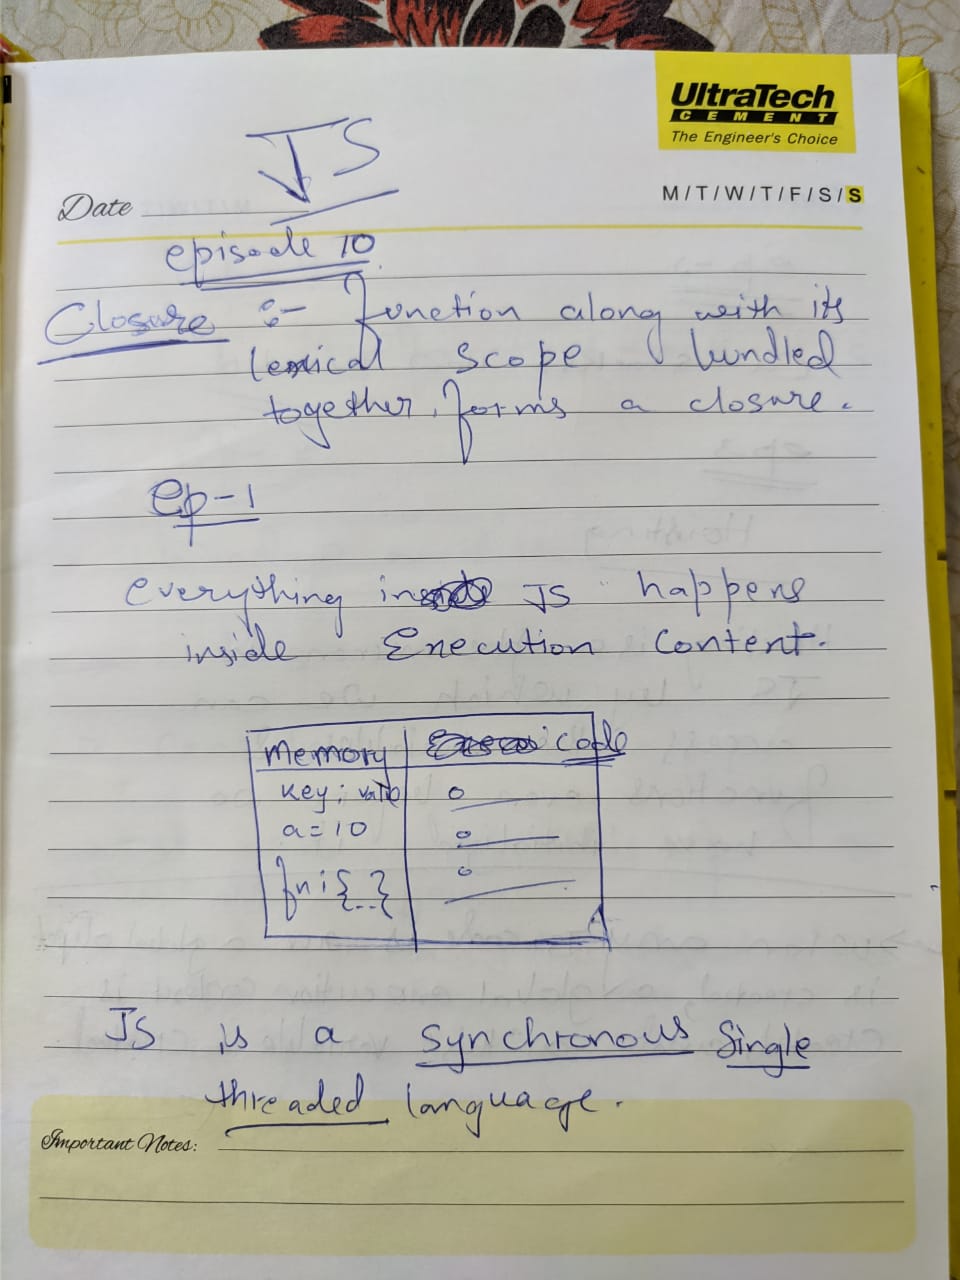 UltraTech
CEMENT
The Engineer's Choice
JS
Date
M/T/W/T/F/S/S
episode 10
Closure :- function along with its
lexical scope bundled
together, forms a closure.
ep-1
everything in JS happens
inside Execution Content.
Memory code
key : value
a = 10
fn : {...}
JS is a synchronous single
threaded language.
Important Notes: